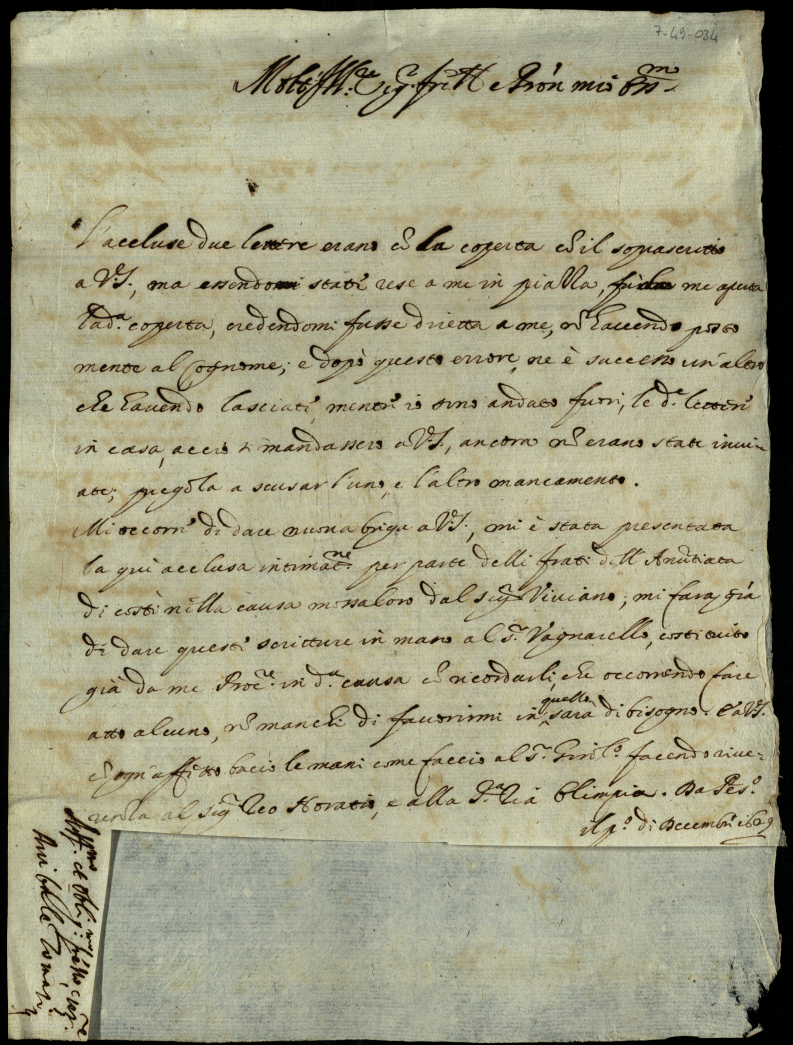 7-49-034
Molt' Ill.re Sig.r fr'llo e Pròn mio oss.mo
L'accluse due lettere erano cō la coperta cō il sopascritto
a V.S., ma essendomi stati rese a me in piazza, fu da me aperta
la d.a coperta, credendomi fusse diretta a me, nō havendo posto
mente al Cognome; e dopò questo errore, ne è successo un'altro
che havendo lasciati, mentr' io sono andato fuori, le d.e letteri
in casa, acciò si mandassero a V.S., ancora nō erano state invi-
ate; pregola a scusar l'uno, e l'altro mancamento.
Mi occorr' di dare nuova briga a V.S., mi è stata presentata
la qui acclusa intimat.ne per parte delli frati dell' Anūtiata
di costì nella causa mossaloro dal sig.r Viviano; mi farà già
di dare questi scritture in mano al S.r Vagnarello, costituito
già da me Proc.re in d.a causa cō ricordarli, che occorrendo fare
atto alcuno, nō manchi di favorirmi in quello sarà di bisogno. E a V.S.
cō ogn'affetto bacio le mani come faccio al S.r Girol.o facendo rive-
renza al sig.r Zio Horatio, e alla S.ra Zia Olimpia. Da Pes.o
il p.o di Decembri 1629
Di V.S.
Aff.mo et oblig.mo fr'ello e ser.re
Anibale Tomasi